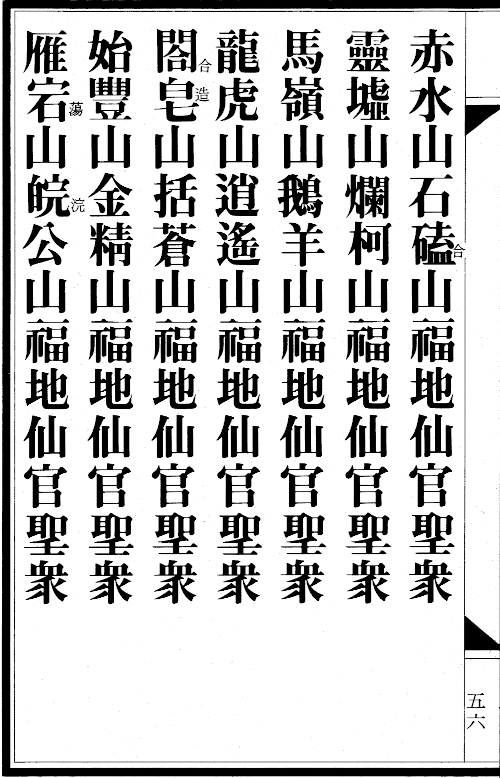 赤水山石磕合山福地仙官聖衆
靈墟山爛柯山福地仙官聖衆
馬嶺山鵝羊山福地仙官聖衆
龍虎山逍遙山福地仙官聖衆
閤合皂造山括蒼山福地仙官聖衆
始豐山金精山福地仙官聖衆
雁宕蕩山皖浣公山福地仙官聖衆
五六